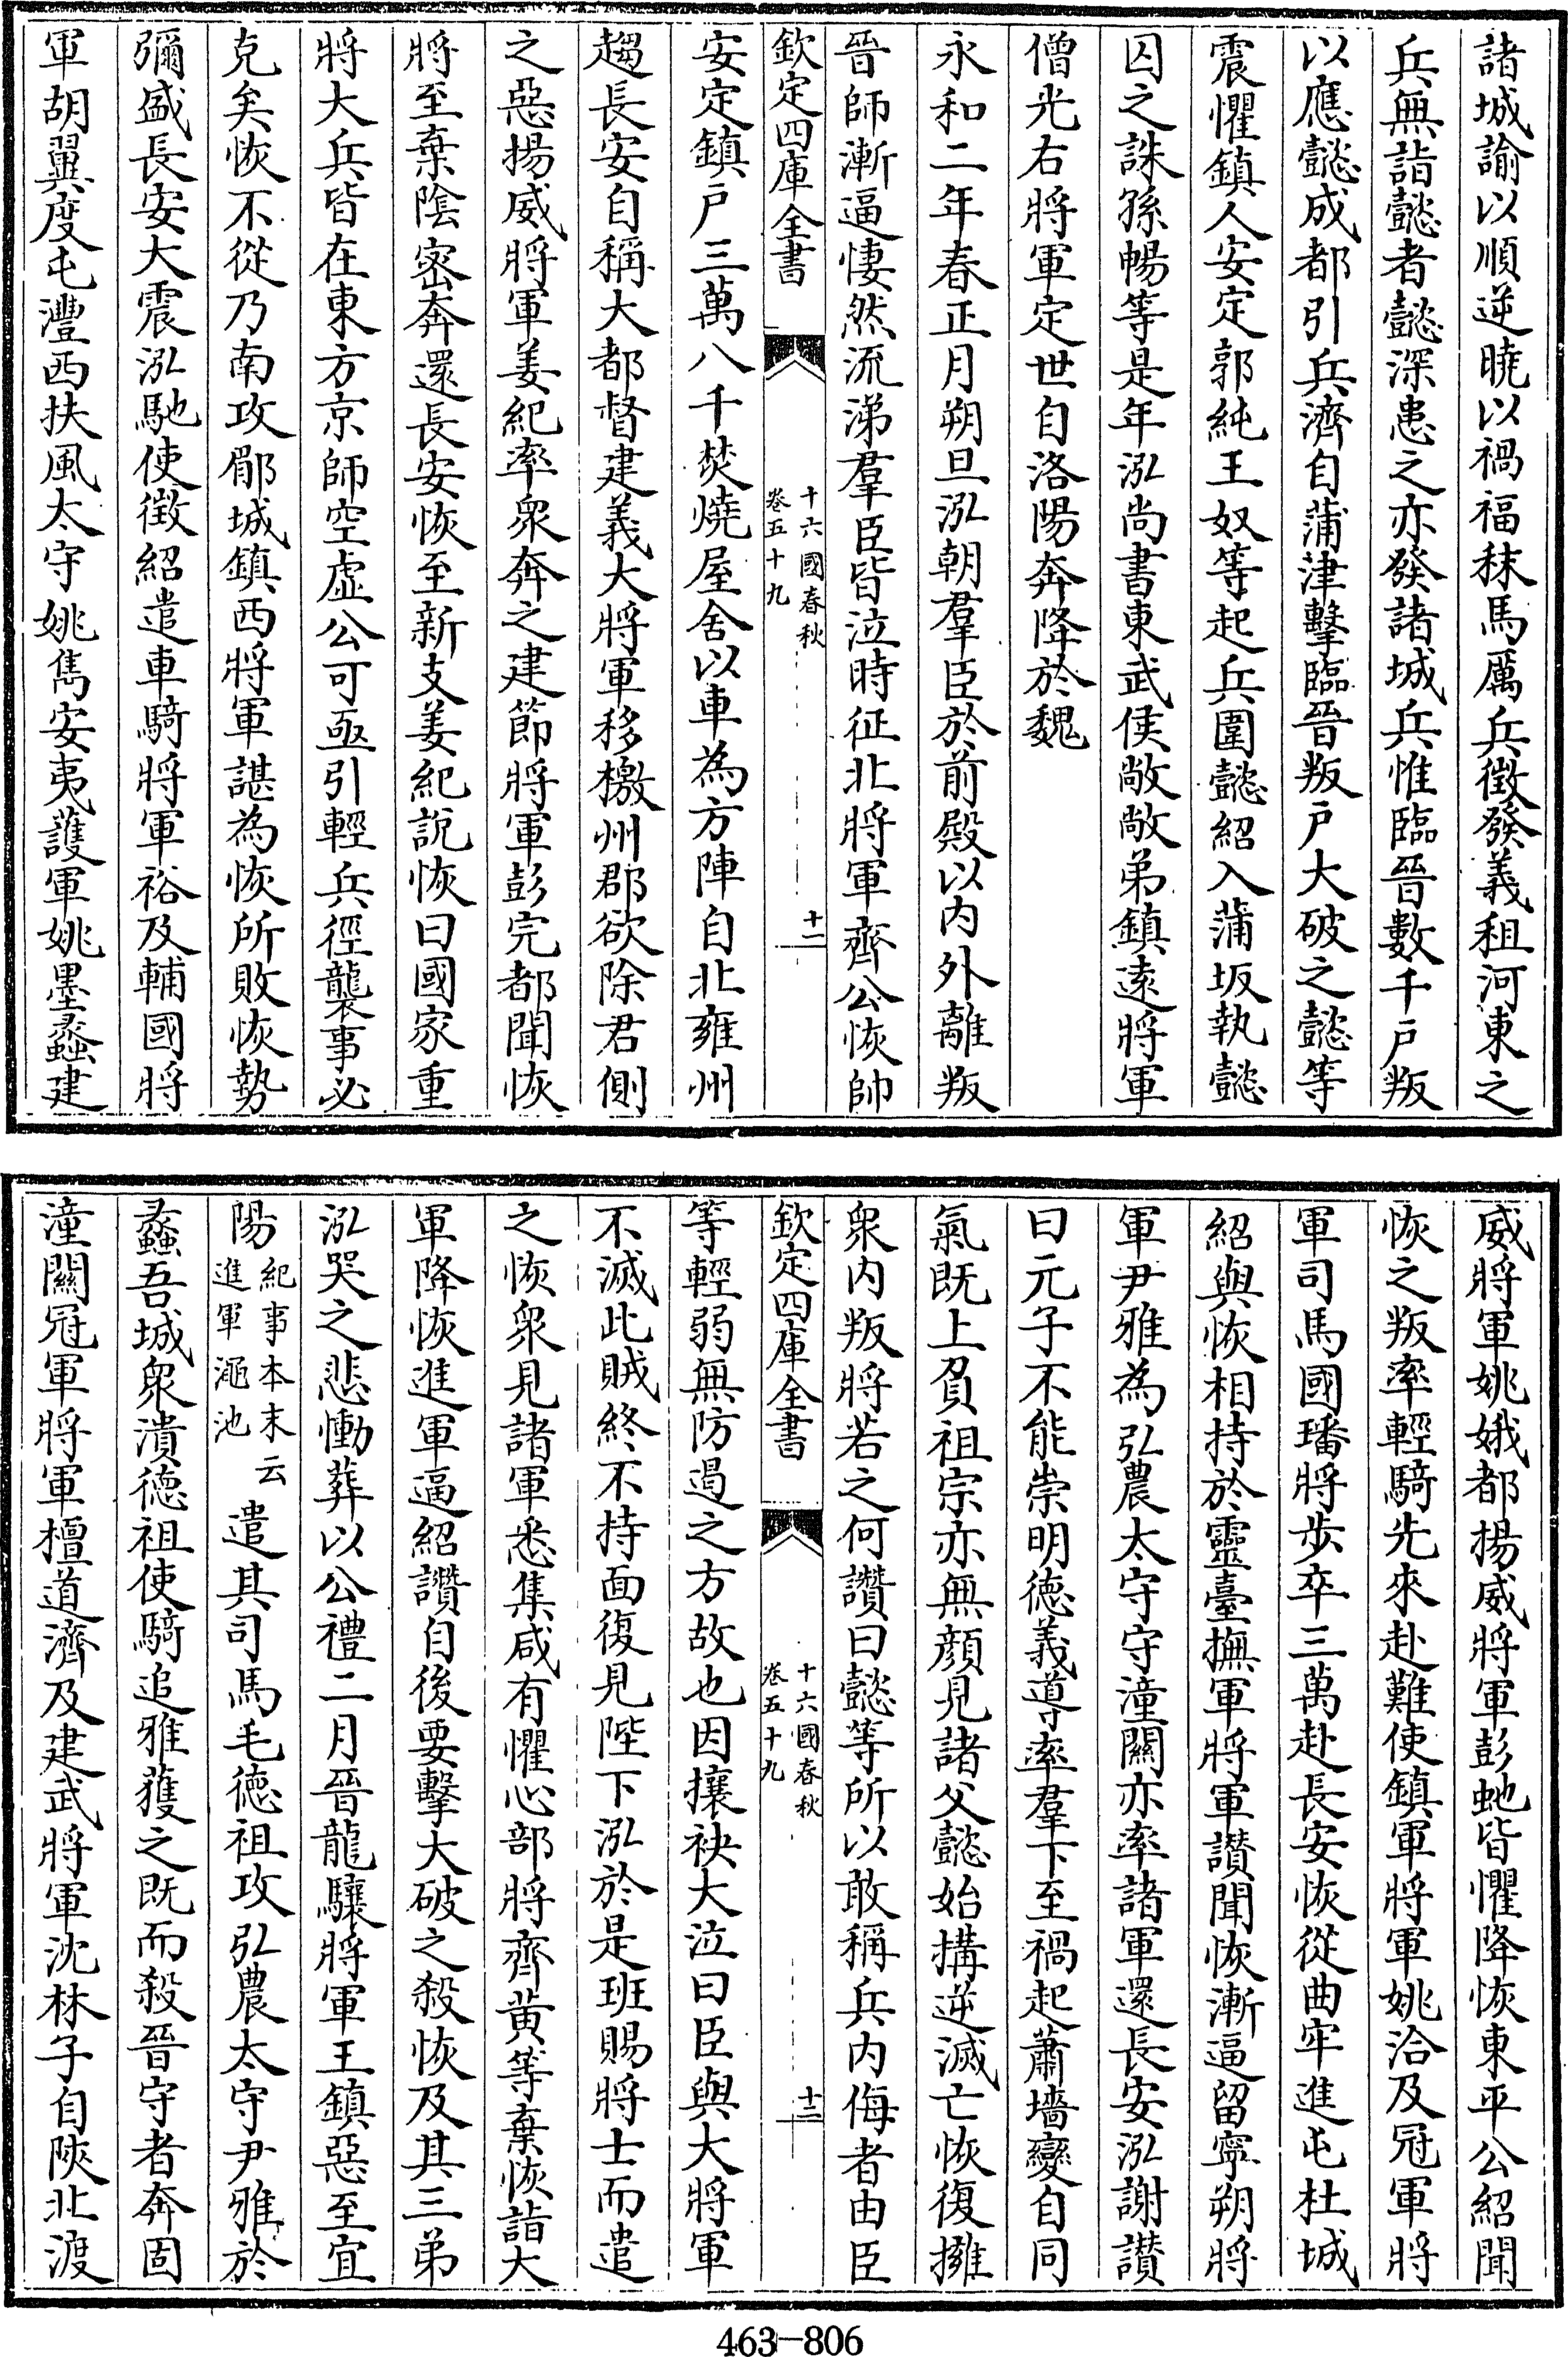 諸城諭以順逆曉以禍福秣馬厲兵徵發義租河東之
兵無詣懿者懿深患之亦發諸城兵惟臨晉數千戶叛
以應懿成都引兵濟自蒲津擊臨晉叛戶大破之懿等
震懼鎮人安定郭純王奴等起兵圍懿紹入蒲坂執懿
囚之誅孫暢等是年泓尚書東武侯敞敞弟鎮遠將軍
僧光右將軍定世自洛陽奔降於魏
永和二年春正月朔旦泓朝羣臣於前殿以內外離叛
晉師漸逼悽然流涕羣臣皆泣時征北將軍齊公恢帥
欽定四庫全書
十六國春秋
卷五十九
十一
安定鎮戶三萬八千焚燒屋舍以車為方陣自北雍州
趨長安自稱大都督建義大將軍移檄州郡欲除君側
之惡揚威將軍姜紀率衆奔之建節將軍彭完都聞恢
將至棄陰密奔還長安恢至新支姜紀說恢曰國家重
將大兵皆在東方京師空虛公可亟引輕兵徑襲事必
克矣恢不從乃南攻郿城鎮西將軍諶為恢所敗恢勢
彌盛長安大震泓馳使徵紹遣車騎將軍裕及輔國將
軍胡翼度屯灃西扶風太守姚雋安夷護軍姚墨蠡建
威將軍姚娥都揚威將軍彭虵皆懼降恢東平公紹聞
恢之叛率輕騎先來赴難使鎮軍將軍姚洽及冠軍將
軍司馬國璠將步卒三萬赴長安恢從曲牢進屯杜城
紹與恢相持於靈臺撫軍將軍讚聞恢漸逼留寧朔將
軍尹雅為弘農太守守潼關亦率諸軍還長安泓謝讚
曰元子不能崇明德義導率羣下至禍起蕭墻變自同
氣既上負祖宗亦無顏見諸父懿始搆逆滅亡恢復擁
衆內叛將若之何讚曰懿等所以敢稱兵內侮者由臣
欽定四庫全書
十六國春秋
卷五十九
十二
等輕弱無防遏之方故也因攘袂大泣曰臣與大將軍
不滅此賊終不持面復見陛下泓於是班賜將士而遣
之恢衆見諸軍悉集咸有懼心部將齊黃等棄恢詣大
軍降恢進軍逼紹讚自後要擊大破之殺恢及其三弟
泓哭之悲慟葬以公禮二月晉龍驤將軍王鎮惡至宜
陽紀事本末云進軍澠池遣其司馬毛德祖攻弘農太守尹雅於
蠡吾城衆潰德祖使騎追雅獲之既而殺晉守者奔固
潼關冠軍將軍檀道濟及建武將軍沈林子自陝北渡
463-806